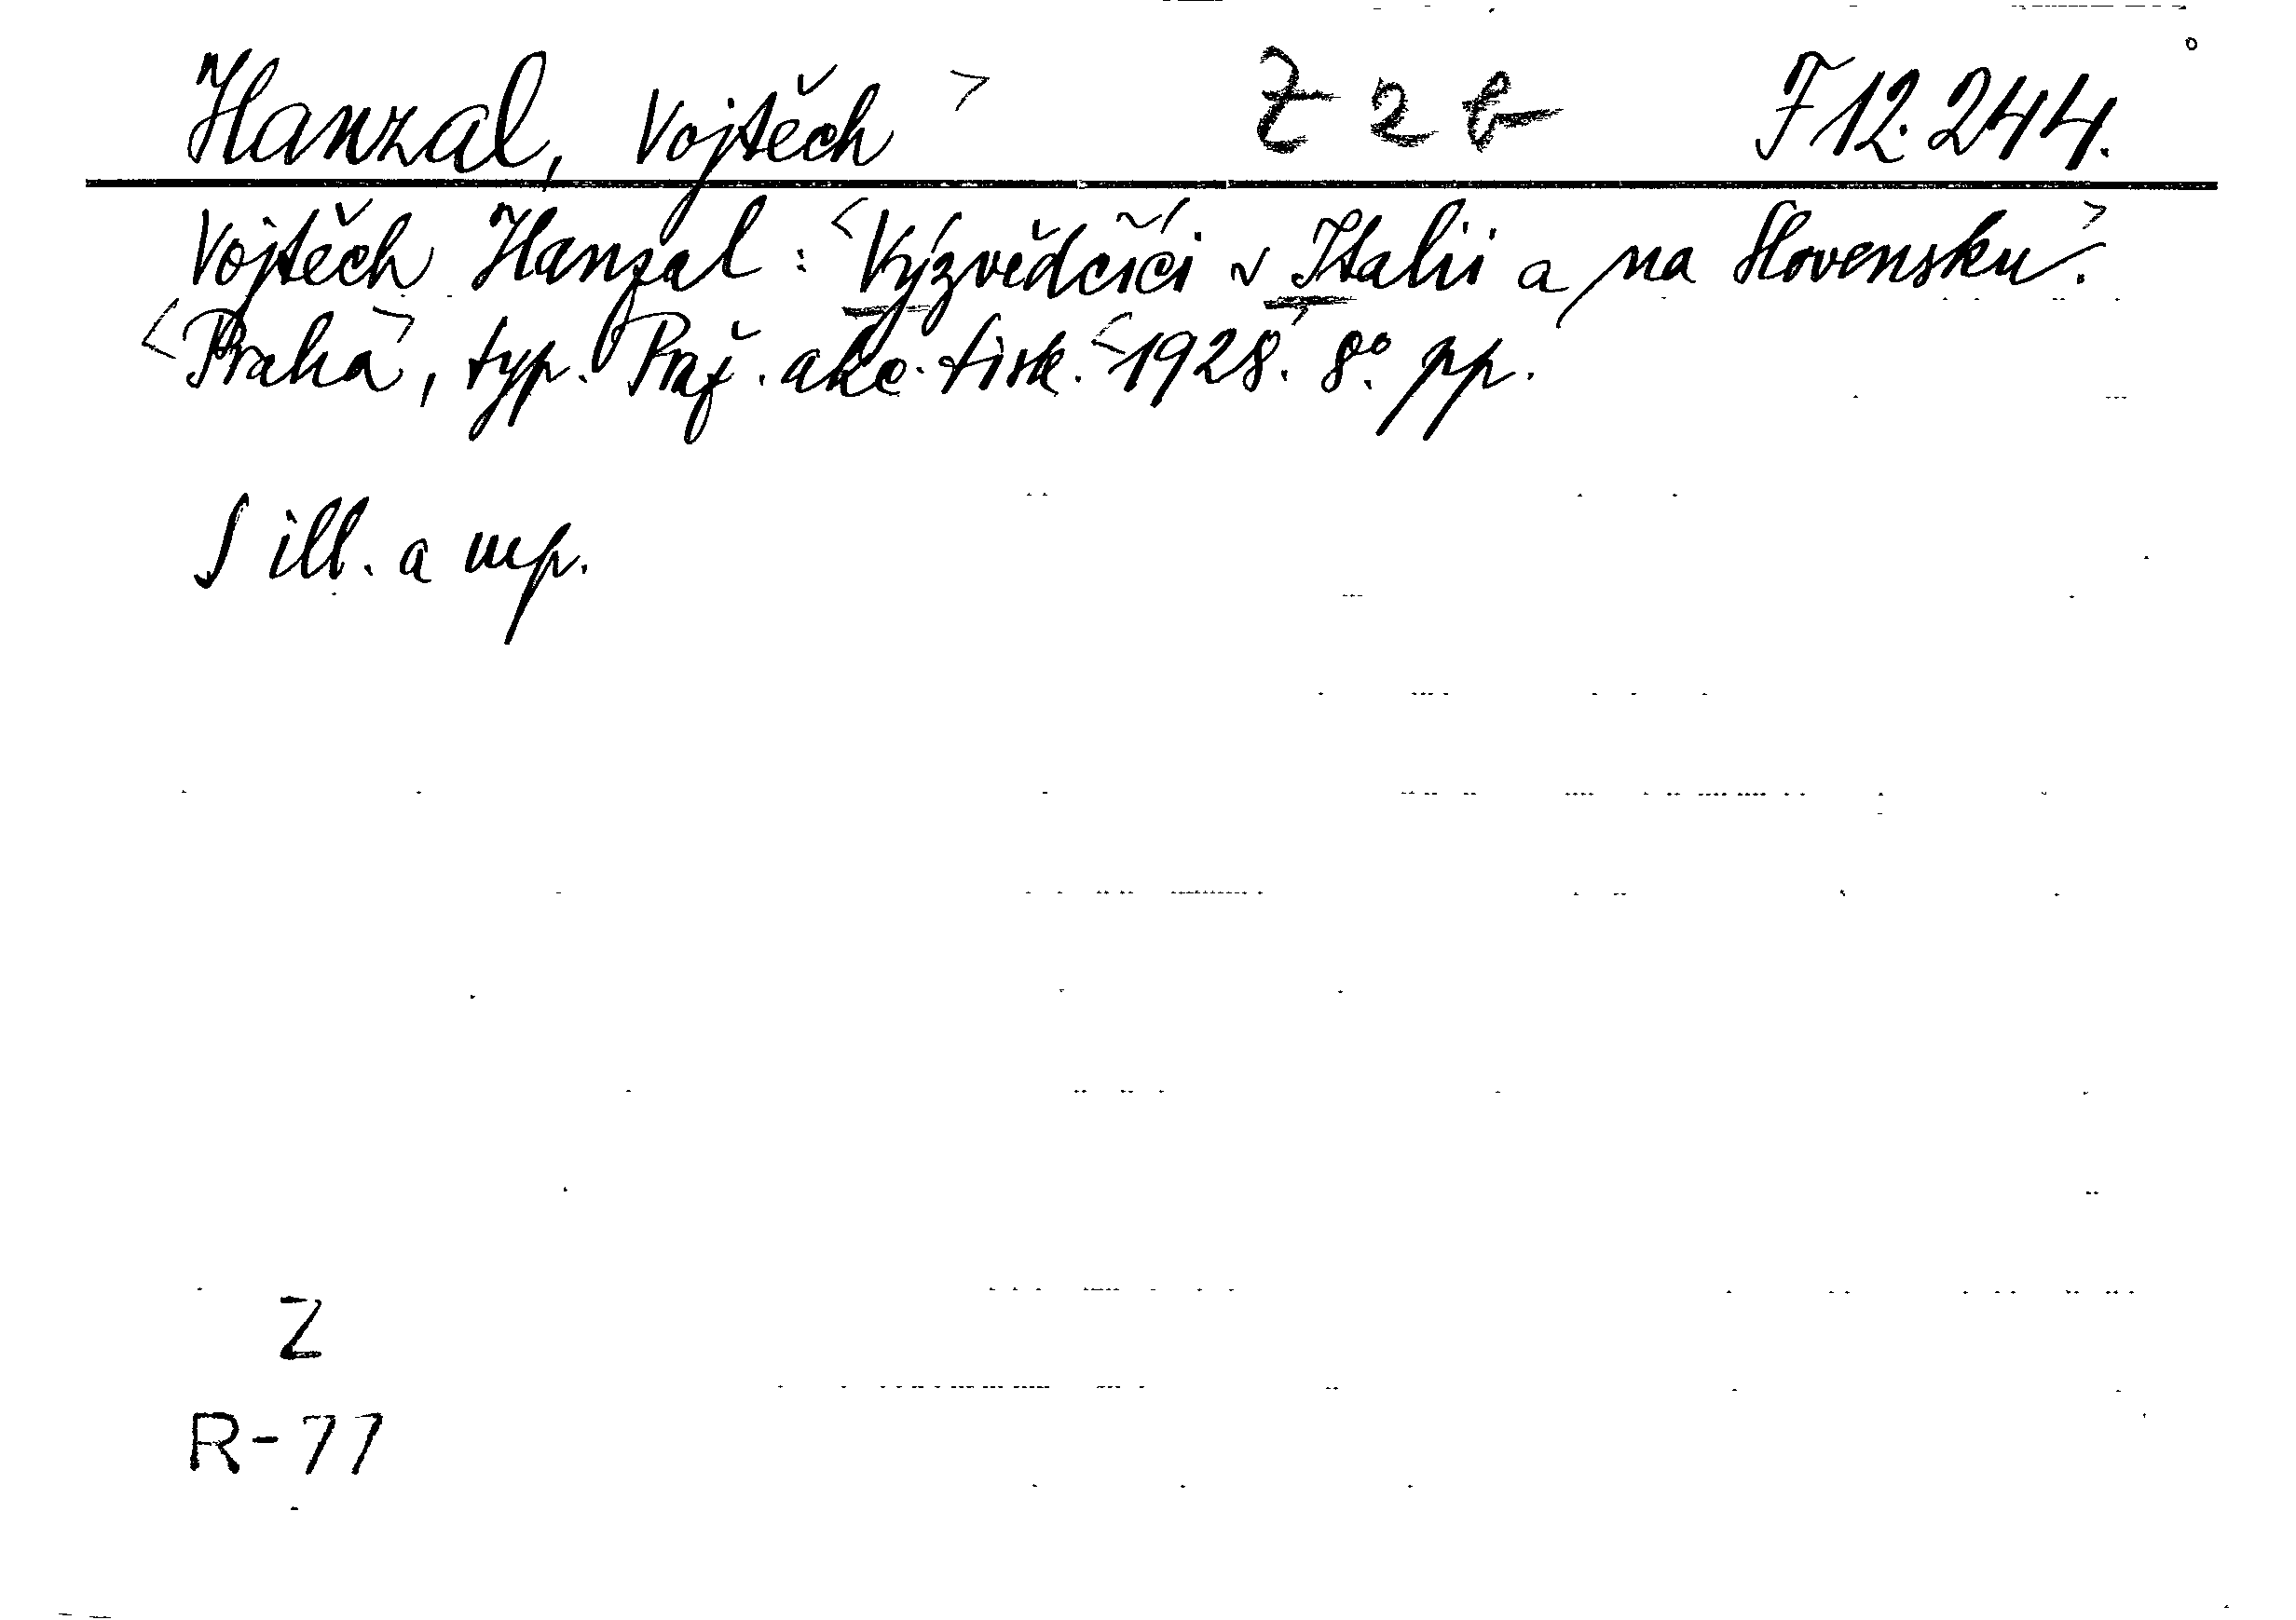 Hanzal, Vojtěch > Z 2 b F 12.244.
Vojtěch Hanzal: <Výzvědčíci v Italii a na Slovensku.>
<Praha>, typ. Praž. akc. tisk. <1928.> 8°. pp.
S ill. a mp.
Z
R-77